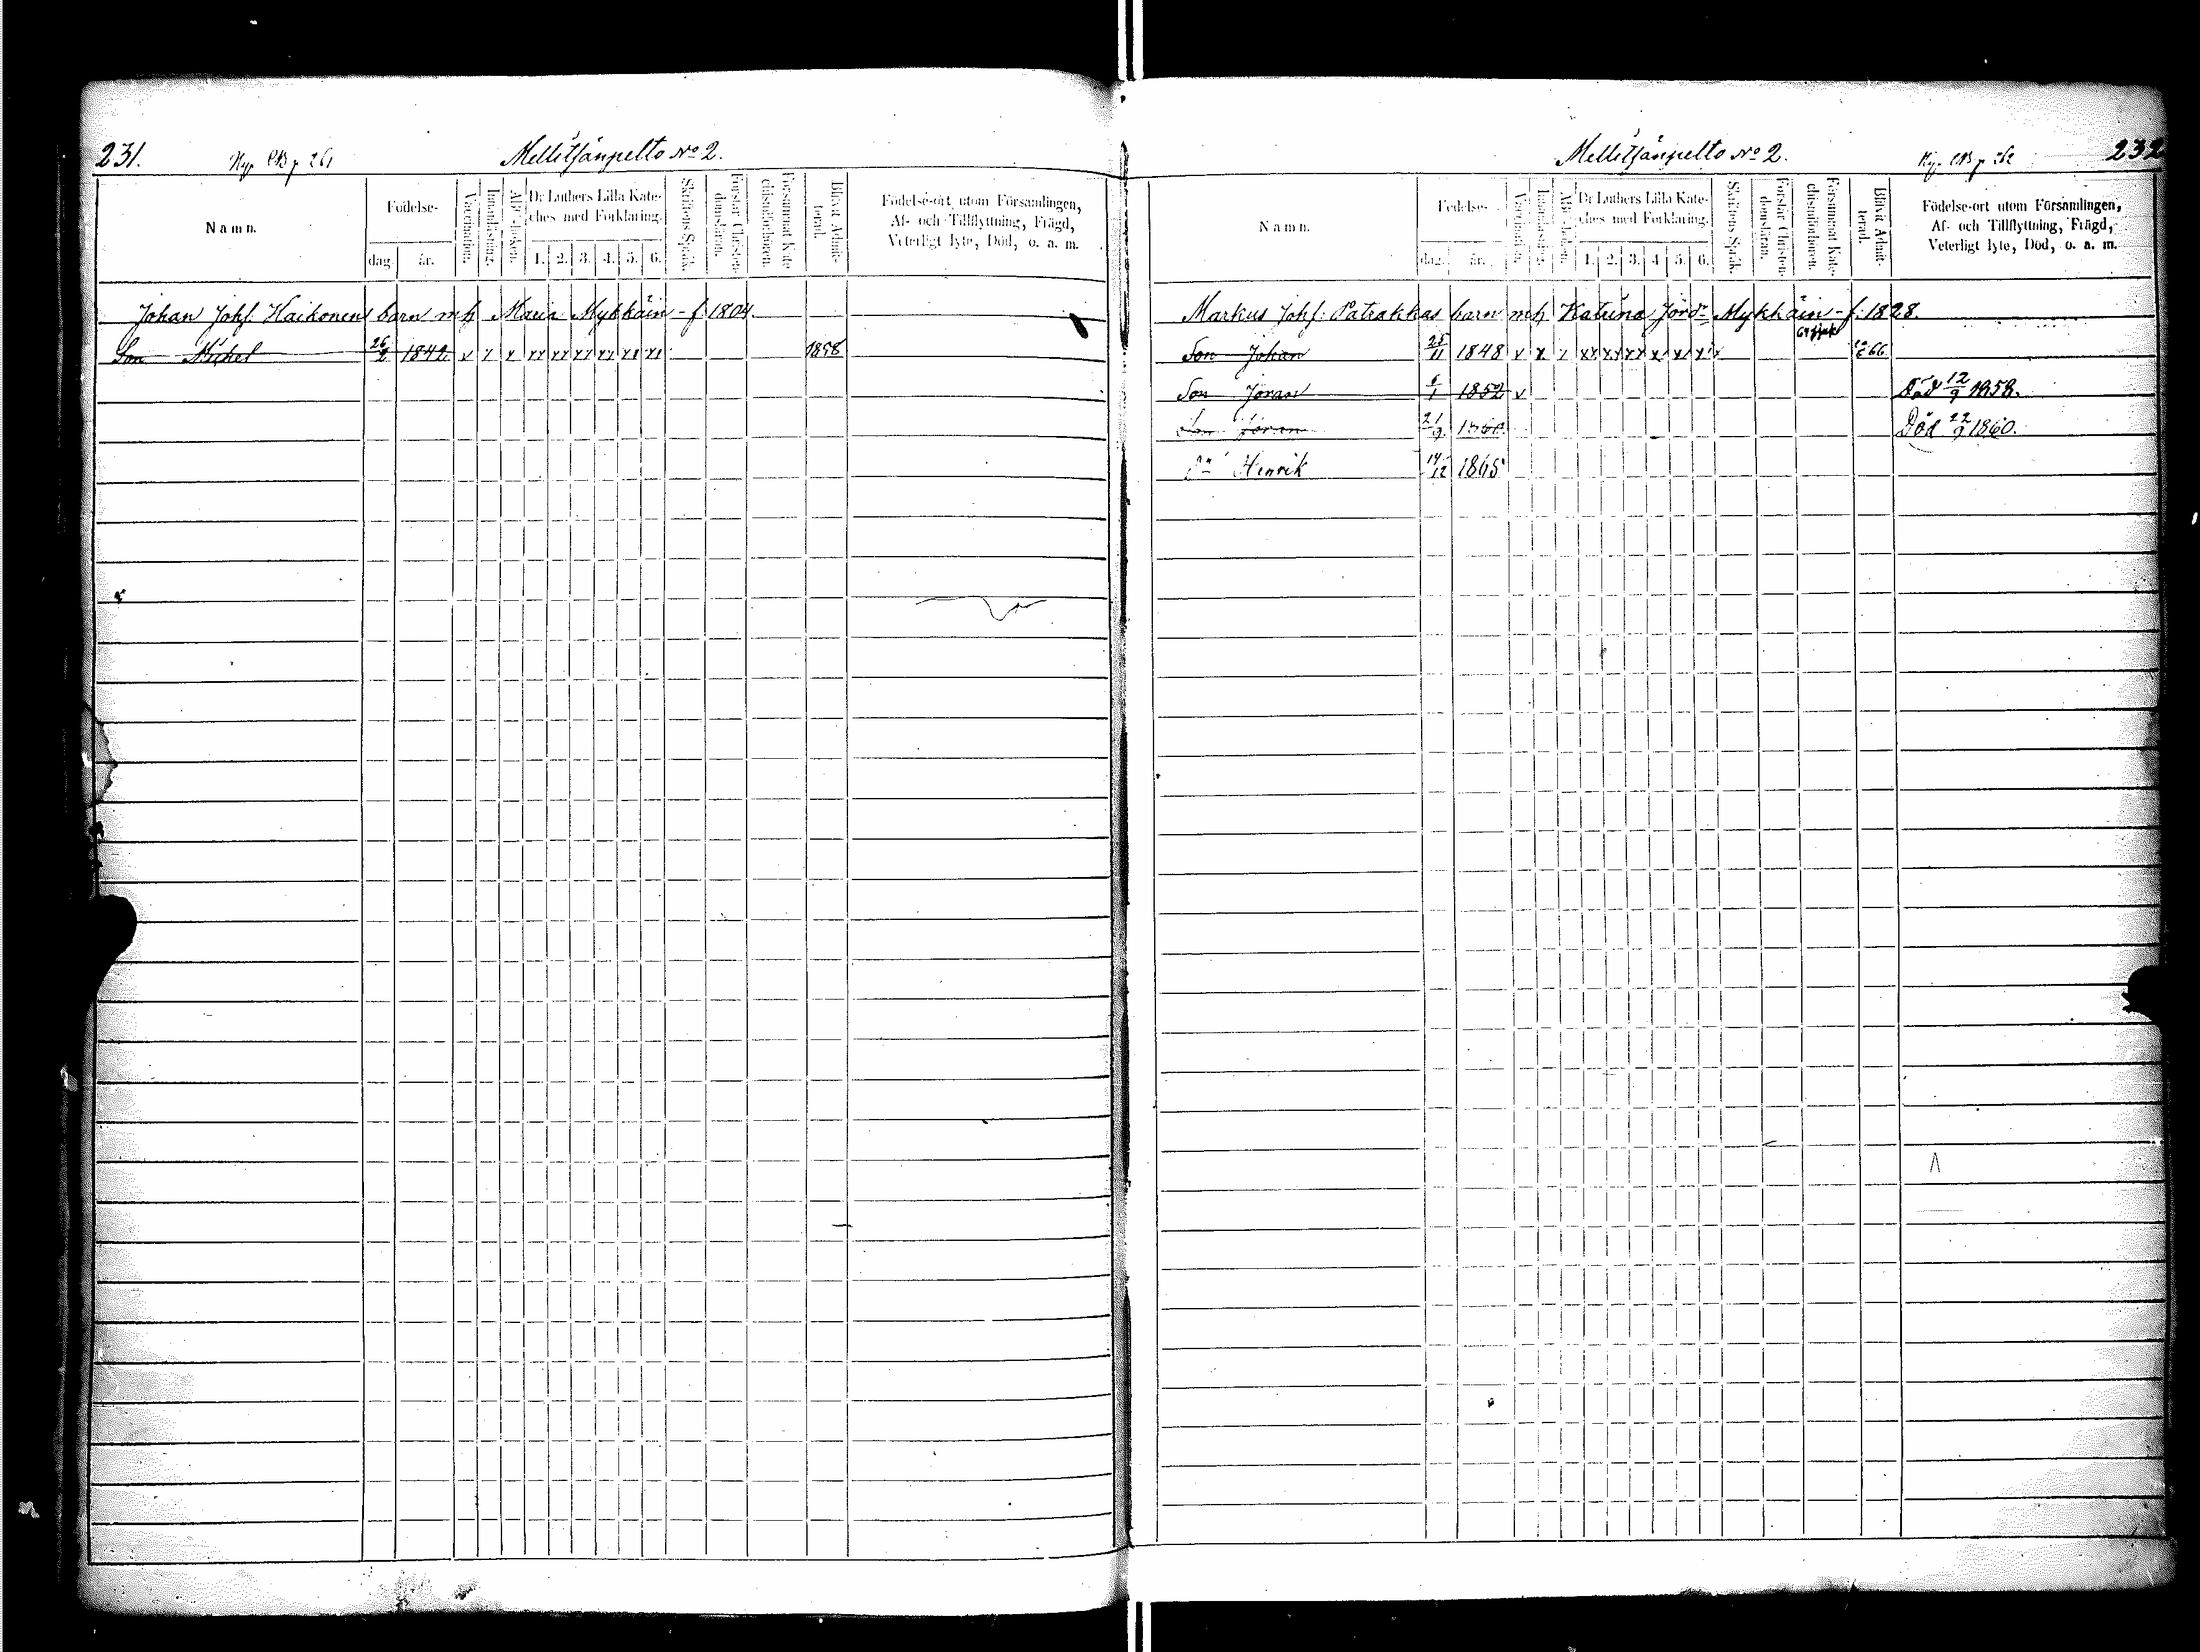 231.
Mellitsänpelto No 2.
Namn.
Födelse-
dag.
år.
Vaccination.
Innanläsning.
ABC-boken.
Dr Luthers Lilla Kate-
ches med Förklaring.
1. 2. 3. 4. 5. 6.
Skriftens Språk.
Förstår Christen-
domsläran.
Försummat Kate-
chismiförhören.
Blifvit Admit-
terad.
Födelse-ort utom Församlingen,
Af- och Tillflyttning, Frägd,
Veterligt lyte, Död, o. a. m.
Johan Johs. Haikonens barn mh Maria Mykkäin - f 1804.
Son Michel 26/2 1842 x x x xx xx xx xx xx xx 1858
Mellitsänpelto No 2.
232
Namn.
Födelse-
dag.
år.
Vaccination.
Innanläsning.
ABC-boken.
Dr Luthers Lilla Kate-
ches med Förklaring.
1. 2. 3. 4 5. 6.
Skriftens Språk.
Förstår Christen-
domsläran.
Försummat Kate-
chismiförhören.
Blifvit Admit-
terad.
Födelse-ort utom Församlingen,
Af- och Tillflyttning, Frägd,
Veterligt lyte, Död, o. a. m.
Markus Johs: Patrakkas barn mh Katrina Jörd:r Mykkäin - f: 1828.
Son Johan 25/11 1848 x x x xx xx xx x x x 66
Son Jöran 6/1 1852 x Död 12/9 1858.
Son Jöran 21/9 Död 22/9 1860.
Henrik 14/12 1865